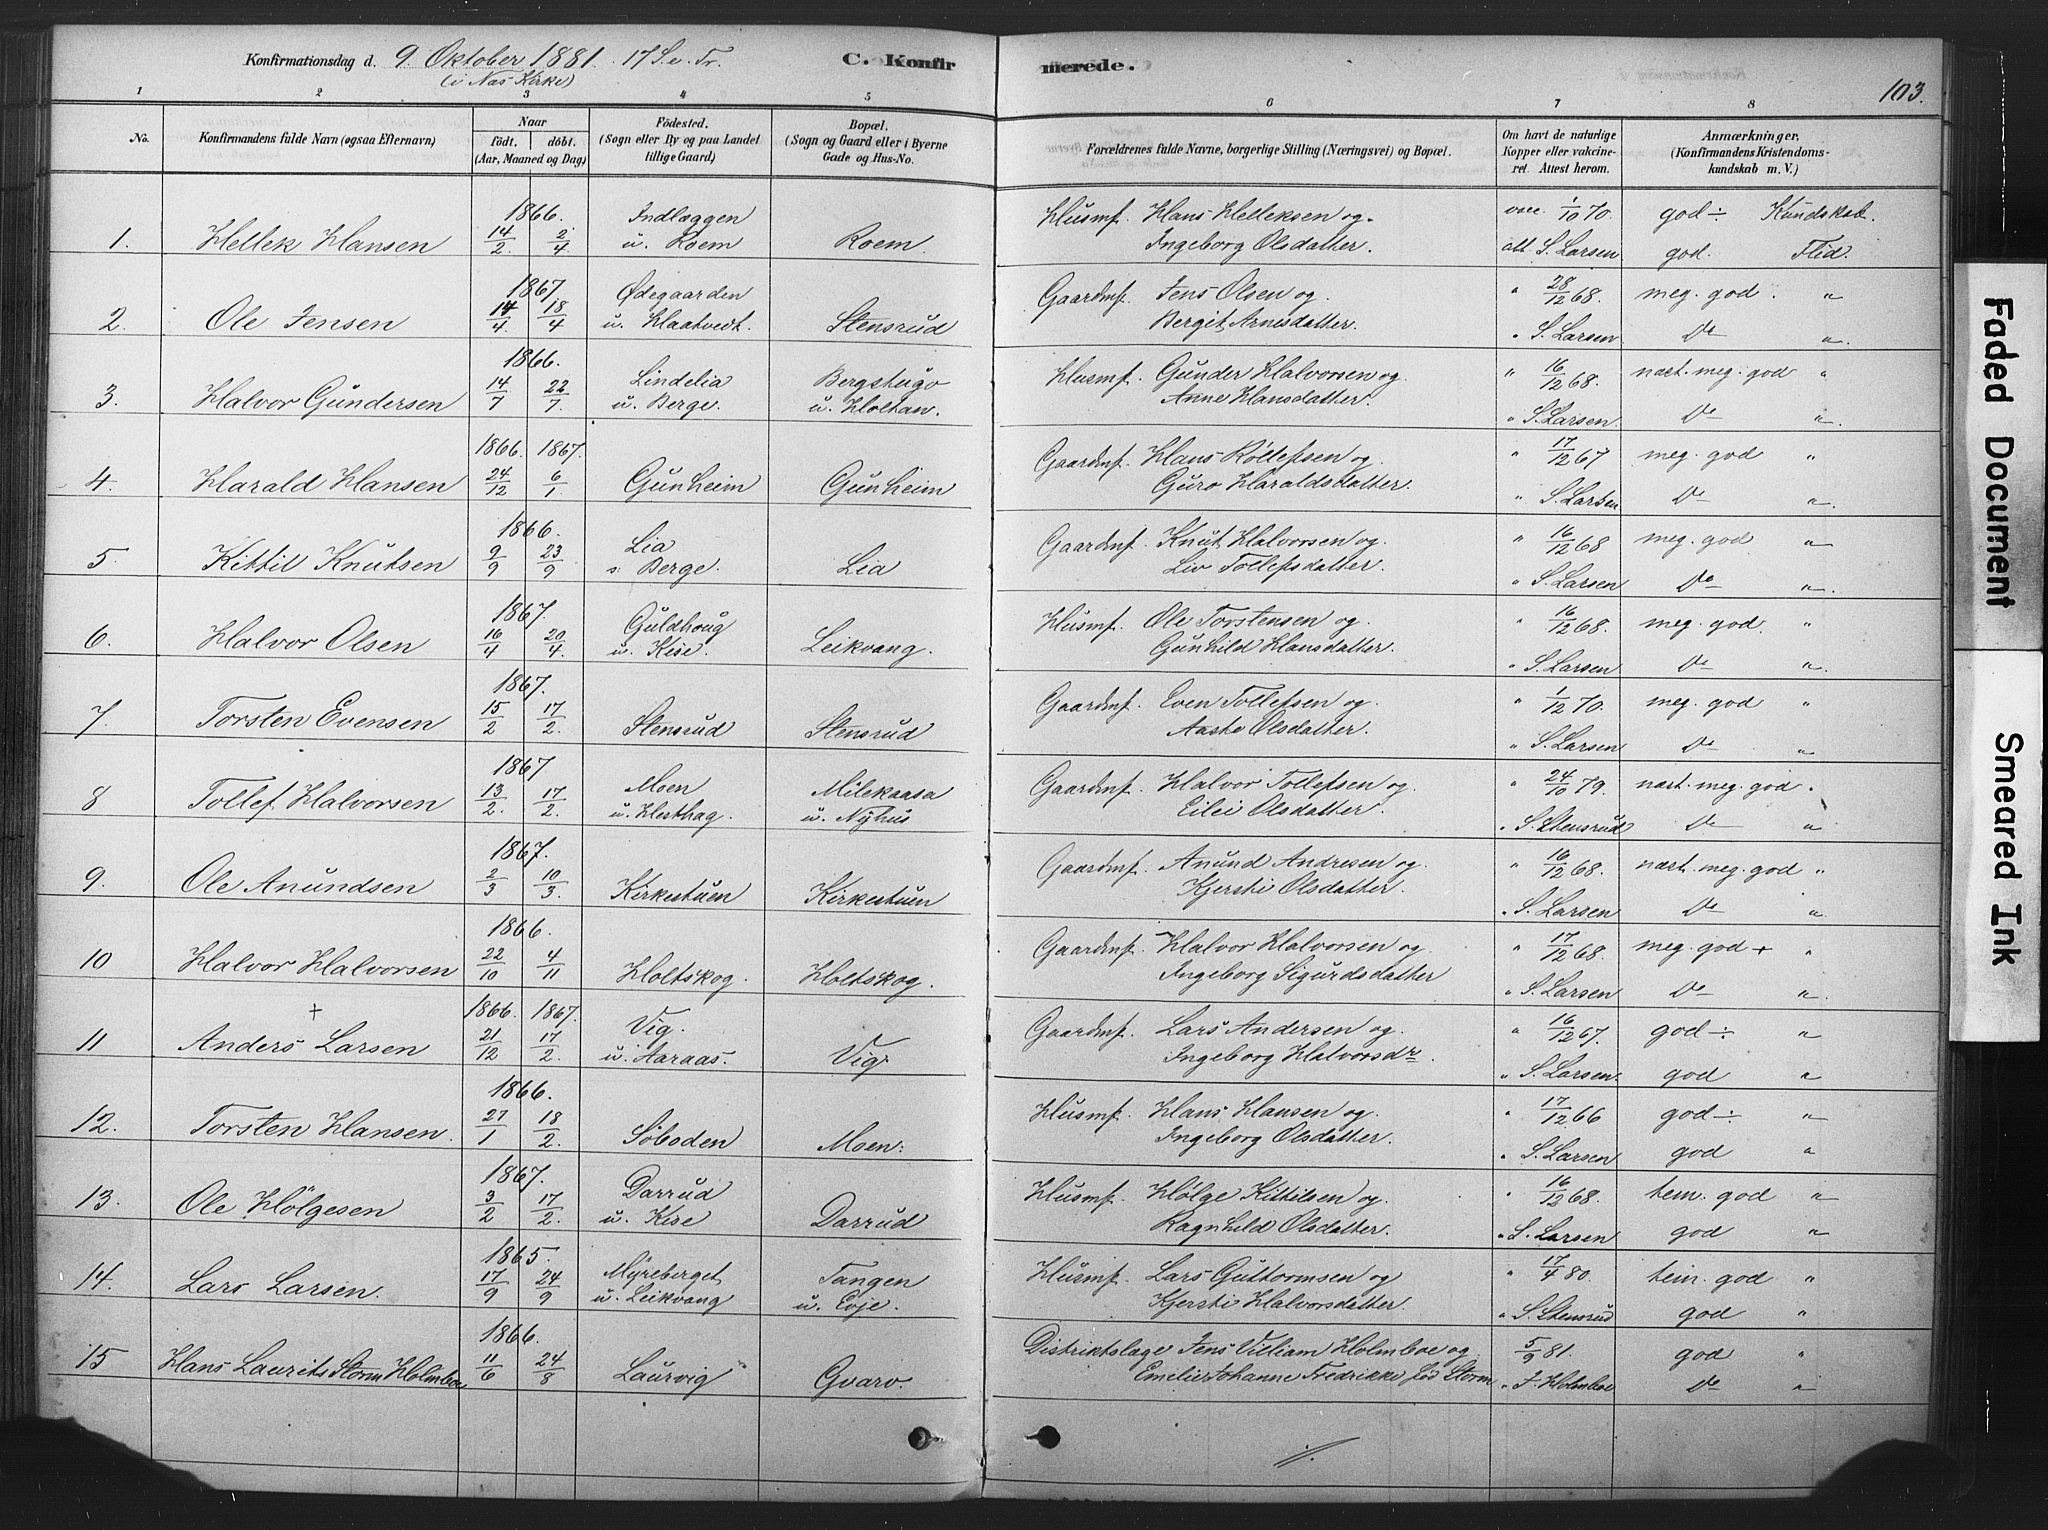 Konfirmationsdag d. 9. Oktober 1881. 17 S. e. Tr. C. Konfirmerede. 103.
(i Næs Kirke)
1 2 3 4 5 6 7 8
No. Konfirmandens fulde Navn (ogsaa Efternavn) Naar födt. döbt. (Aar, Maaned og Dag) Födested. (Sogn eller By og paa Landet tillige Gaard) Bopæl. (Sogn og Gaard eller i Byerne Gade og Hus-No. Forældrenes fulde Navne, borgerlige Stilling (Næringsvei) og Bopæl. Om havt de naturlige Kopper eller vakcineret. Attest herom. Anmærkninger. (Konfirmandens Kristendomskundskab m. V.)
1866. Indlæggen Husmf. Hans Helleksen og vacc. 1/10 70. god ÷ Kundskab.
1. Hellek Hansen 14/2. 2/4 u. Roem Roem. Ingeborg Olsdatter. att. S. Larsen god. Flid.
1867. Ødegaarden Gaardmf. Jens Olsen og " 28/12 68. meg. god. "
2. Ole Jensen 14/4 18/4 u. Klaatvedt. Stensrud Bergit Arnesdatter. " S. Larsen Do "
1866. Lindelia Bergstugo Husmf. Gunder Halvorsen og " 16/12 68. næst. meg. god "
3. Halvor Gundersen 14/7 22/7. u. Berge. u. Holtan. Anne Hansdatter. " S. Larsen. Do "
1866. 1867. Gaardmf. Hans Rollefsen og " 17/12 67 meg. god "
4. Harald Hansen 24/12 6/1. Gunheim Gunheim Guro Haraldsdatter. " S. Larsen Do "
1866. Lia Gaardmf. Knut Halvorsen og " 16/12 68 meg. god "
5. Kittil Knutsen 9/9 23/9 s. Berge. Lia Liv Tollefsdatter. " S. Larsen Do "
1867. Guldhoug Husmf. Ole Torstensen og " 16/12 68. meg. god. "
6. Halvor Olsen 16/4 20/4. u. Kise. Leikvang. Gunhild Hansdatter. " S. Larsen Do "
1867. Gaardmf. Even Tollefsen og " 1/12 70. meg. god "
7. Torsten Evensen 15/2 17/2. Stensrud Stensrud Aaste Olsdatter. " S. Larsen Do "
1867 Moen Mileksaasa Gaardmf. Halvor Tollefsen og " 24/10 79. næst. meg. god "
8 Tollef Halvorsen 13/2. 17/2. u. Hesthag. u. Nyhus Eilei Olsdatter. " S. Stensrud Do "
1867. Gaardmf. Anund Andresen og " 16/12 68. næst. meg. god "
9. Ole Anundsen 2/3 10/3. Kirkestuen Kirkestuen Kjersti Olsdatter. " S. Larsen Do "
1866. Gaardmf. Halvor Halvorsen og " 17/12 68. meg. god + "
10 Halvor Halvorsen 22/10 4/11 Holtskog. Holtskog. Ingeborg Sigurdsdatter " S. Larsen Do "
+ 1866. 1867. Vig. Gaardmf. Lars Andersen og " 16/12 67. god ÷ "
11 Anders Larsen 21/12 17/2. u. Aaraas. Vig. Ingeborg Halvorsdr. " S. Larsen. god "
1866. Husmf. Hans Hansen og " 17/12 66 god ÷ "
12. Torsten Hansen. 27/1 18/2. Söboden Moen. Ingeborg Olsdatter. " S. Larsen god "
1867. Darrud Husmf. Hölge Kittilsen og " 16/12 68. tem. god "
13. Ole Hölgesen 3/2 17/2. u. Kise Darrud Ragnhild Olsdatter. " S. Larsen god "
1865. Myreberget Tangen Husmf. Lars Guttormsen og " 17/4 80. tem. god "
14. Lars Larsen. 17/9 24/9 u. Leikvang u. Evje. Kjersti Halvorsdatter. " S. Stensrud god "
1866. Distriktslæge Jens Villiam Holmboe og 5/9 81. god "
15 Hans Laurits Storm Holmboe 11/6 24/8 Laurvig Gvarv. Emilie Johanne Fredrikke föd Storm " J. Holmboe Do "
Faded Document
Smeared Ink